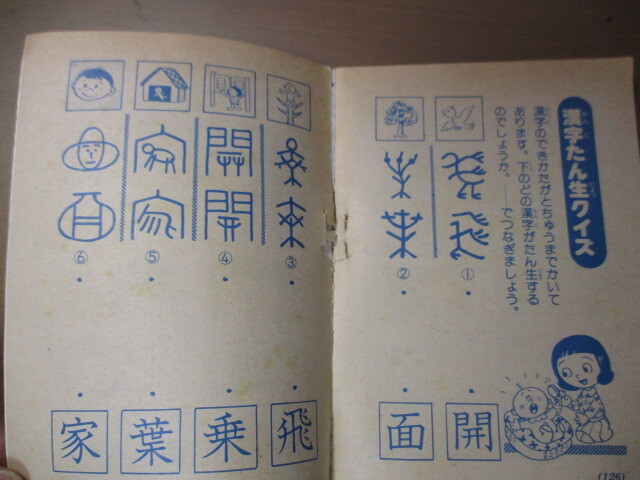 漢字たん生クイズ
漢字のできかたがとちゅうまでかいて
あります。下のどの漢字がたん生する
のでしょうか。——でつなぎましょう。
①
②
③
④
⑤
⑥
開
面
飛
乗
葉
家
(126)